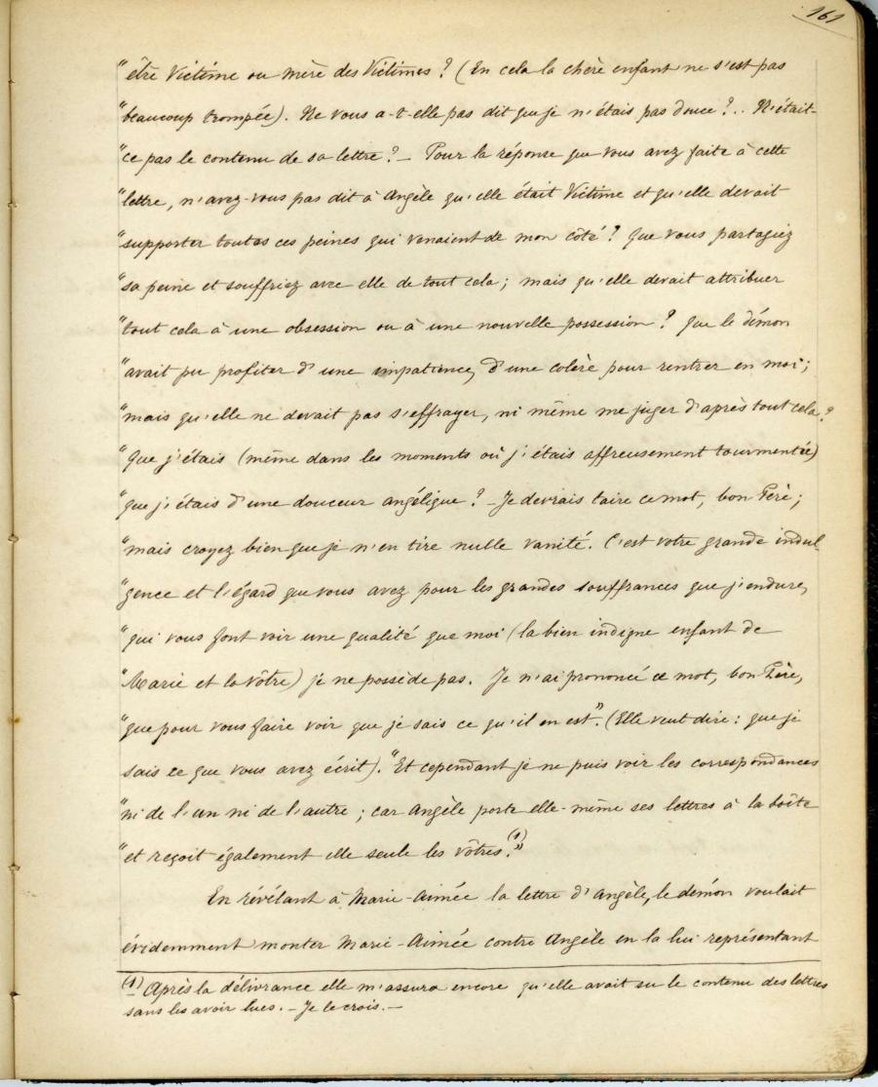 161
"être Victime ou Mère des Victimes ? (En cela la chère enfant ne s'est pas
"beaucoup trompée). Ne vous a-t-elle pas dit que je n'étais pas douce ?.. N'était-
"ce pas le contenu de sa lettre ? – Pour la réponse que vous avez faite à cette
"lettre, n'avez-vous pas dit à Angèle qu'elle était Victime et qu'elle devait
"supporter toutes ces peines qui venaient de mon côté ? Que vous partagiez
"sa peine et souffriez avec elle de tout cela ; mais qu'elle devait attribuer
"tout cela à une obsession ou à une nouvelle possession ? Que le démon
"avait pu profiter d'une impatience, d'une colère pour rentrer en moi ;
"mais qu'elle ne devait pas s'effrayer, ni même me juger d'après tout cela ?
"Que j'étais (même dans les moments où j'étais affreusement tourmentée)
"que j'étais d'une douceur angélique ? – Je devrais taire ce mot, bon Père ;
"mais croyez bien que je n'en tire nulle vanité. C'est votre grande indul
"gence et l'égard que vous avez pour les grandes souffrances que j'endure,
"qui vous font voir une qualité que moi (la bien indigne enfant de
"Marie et la vôtre) je ne possède pas. Je n'ai prononcé ce mot, bon Père,
"que pour vous faire voir que je sais ce qu'il en est". (Elle veut dire : que je
sais ce que vous avez écrit). "Et cependant je ne puis voir les correspondances
"ni de l'un ni de l'autre ; car Angèle porte elle-même ses lettres à la boîte
"et reçoit également elle seule les vôtres." (1)
En révélant à Marie-Aimée la lettre d'Angèle, le démon voulait
évidemment monter Marie-Aimée contre Angèle en la lui représentant
(1) Après la délivrance elle m'assura encore qu'elle avait su le contenu des lettres
sans les avoir lues. – Je le crois. –